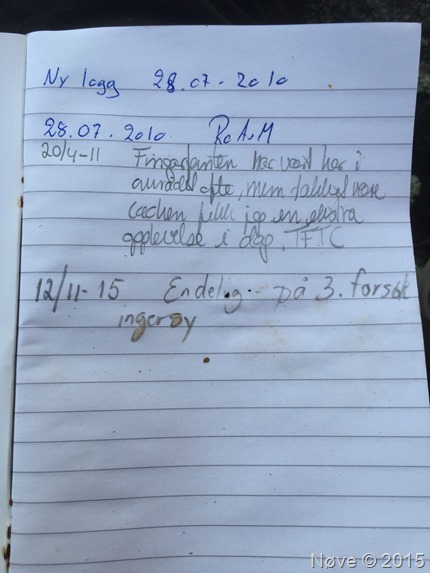 Ny logg 28.07-2010
28.07.2010 RoAsM
20/4-11 Fingerjenten har vært her i
området ofte, men takket være
cachen fikk jeg en ekstra
opplevelse i dag. TFTC
12/11-15 Endelig.. på 3. forsøk
ingeroy
Nøve © 2015